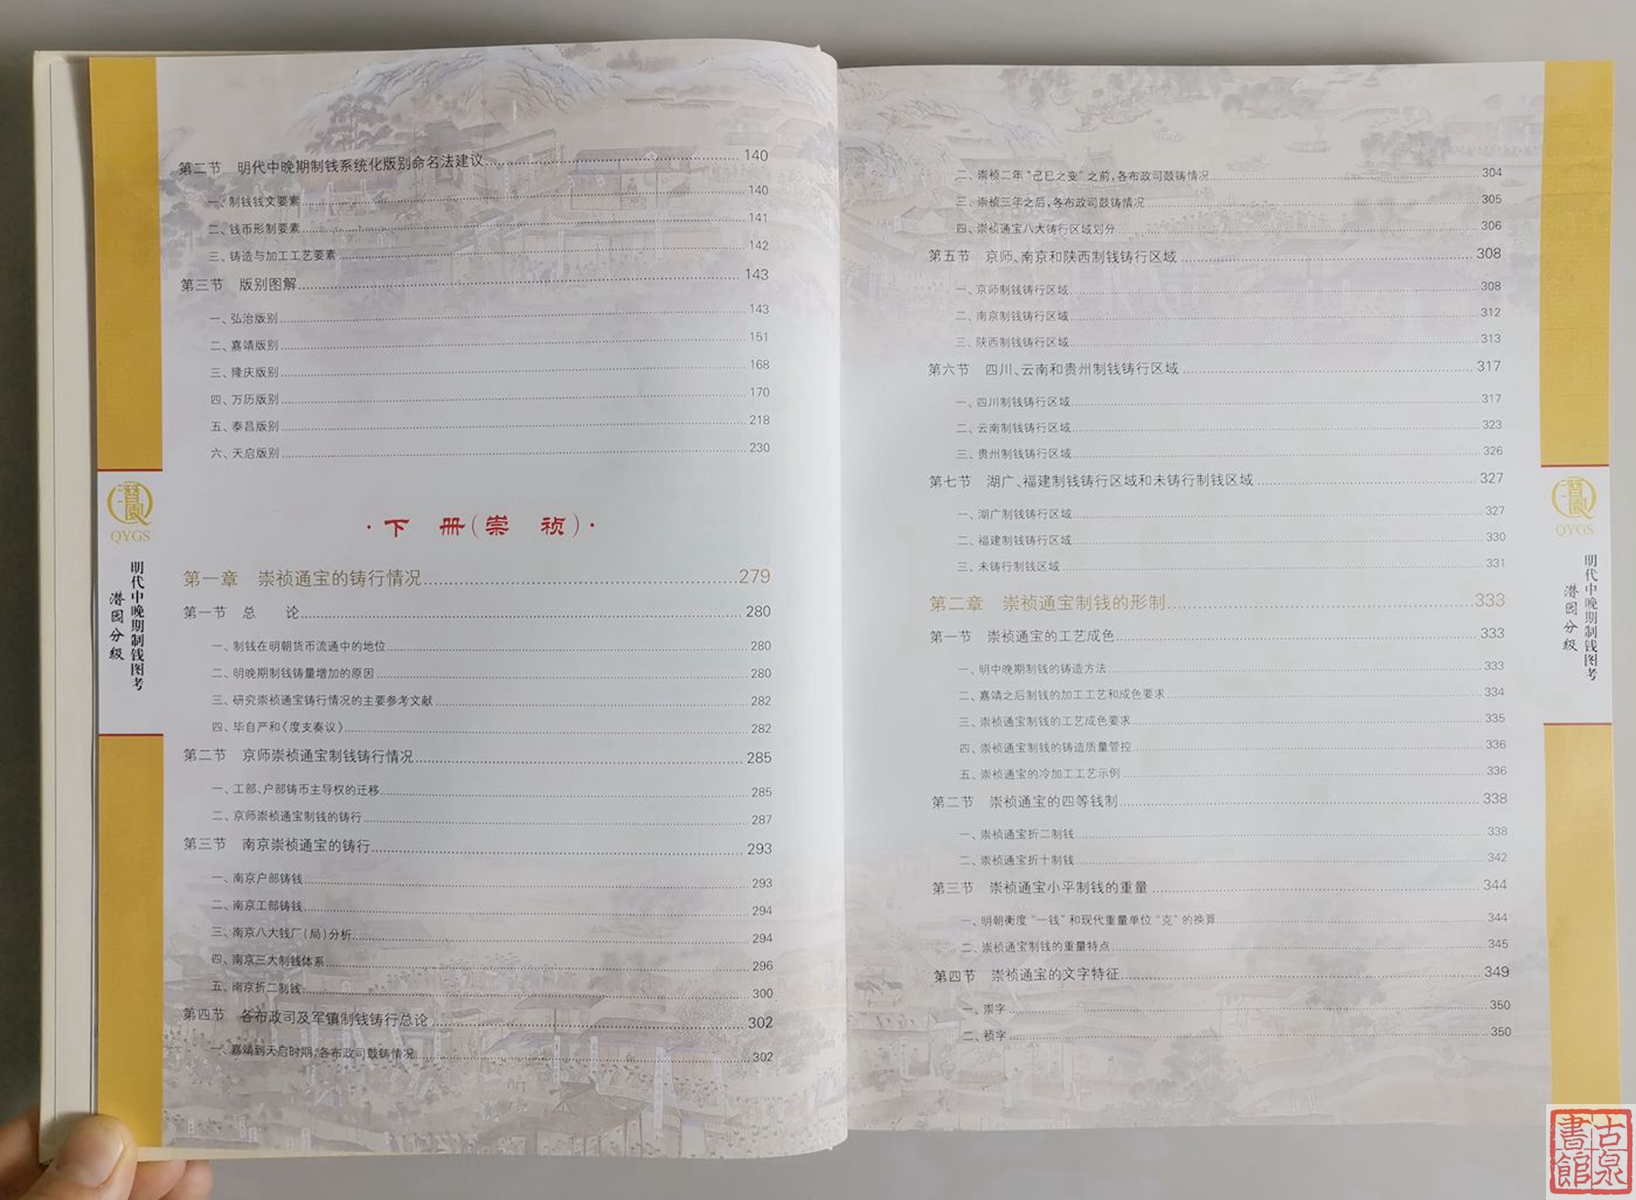 第二节 明代中晚期制钱系统化版别命名法建议 140
一、制钱钱文要素 140
二、钱币形制要素 141
三、铸造与加工工艺要素 142
第三节 版别图解 143
一、弘治版别 143
二、嘉靖版别 151
三、隆庆版别 168
四、万历版别 170
五、泰昌版别 218
六、天启版别 230
·下 册(崇 祯)·
第一章 崇祯通宝的铸行情况 279
第一节 总 论 280
一、制钱在明朝货币流通中的地位 280
二、明晚期制钱铸量增加的原因 280
三、研究崇祯通宝铸行情况的主要参考文献 282
四、毕自严和《度支奏议》 282
第二节 京师崇祯通宝制钱铸行情况 285
一、工部、户部铸币主导权的迁移 285
二、京师崇祯通宝制钱的铸行 287
第三节 南京崇祯通宝的铸行 293
一、南京户部铸钱 293
二、南京工部铸钱 294
三、南京八大钱厂(局)分析 294
四、南京三大制钱体系 296
五、南京折二制钱 300
第四节 各布政司及军镇制钱铸行总论 302
一、嘉靖到天启时期,各布政司鼓铸情况 302
潜園
QYGS
明代中晚期制钱图考
潜园分级
二、崇祯二年“己巳之变”之前,各布政司鼓铸情况 304
三、崇祯三年之后,各布政司鼓铸情况 305
四、崇祯通宝八大铸行区域划分 306
第五节 京师、南京和陕西制钱铸行区域 308
一、京师制钱铸行区域 308
二、南京制钱铸行区域 312
三、陕西制钱铸行区域 313
第六节 四川、云南和贵州制钱铸行区域 317
一、四川制钱铸行区域 317
二、云南制钱铸行区域 323
三、贵州制钱铸行区域 326
第七节 湖广、福建制钱铸行区域和未铸行制钱区域 327
一、湖广制钱铸行区域 327
二、福建制钱铸行区域 330
三、未铸行制钱区域 331
第二章 崇祯通宝制钱的形制 333
第一节 崇祯通宝的工艺成色 333
一、明中晚期制钱的铸造方法 333
二、嘉靖之后制钱的加工工艺和成色要求 334
三、崇祯通宝制钱的工艺成色要求 335
四、崇祯通宝制钱的铸造质量管控 336
五、崇祯通宝的冷加工工艺示例 336
第二节 崇祯通宝的四等钱制 338
一、崇祯通宝折二制钱 338
二、崇祯通宝折十制钱 342
第三节 崇祯通宝小平制钱的重量 344
一、明朝衡度“一钱”和现代重量单位“克”的换算 344
二、崇祯通宝制钱的重量特点 345
第四节 崇祯通宝的文字特征 349
一、崇字 350
二、祯字 350
潜園
QYGS
明代中晚期制钱图考
潜园分级
古泉書館